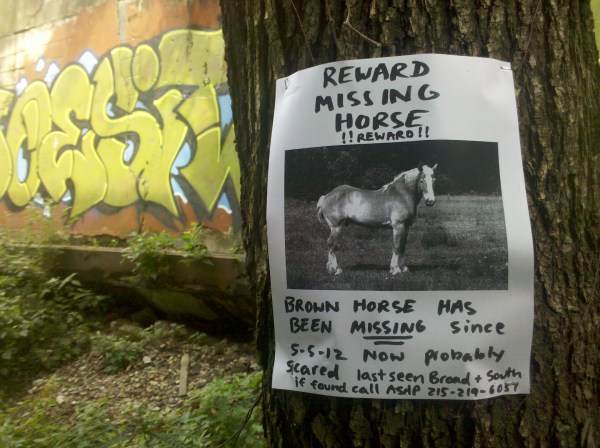 REWARD
MISSING
HORSE
!!REWARD!!
BROWN HORSE HAS
BEEN MISSING Since
5-5-12 Now probably
Scared last seen Broad + South
if found call ASAP 215-219-6057